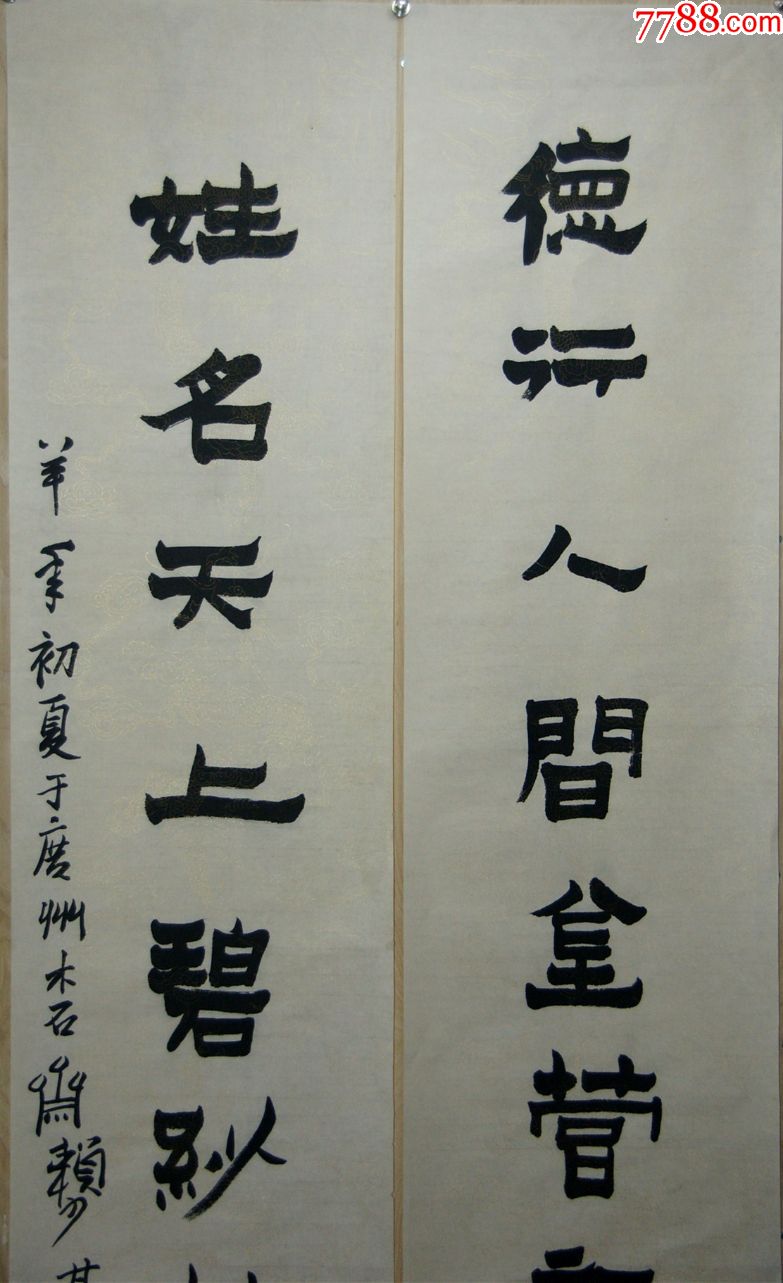 7788.com
德行人間金管
姓名天上碧紗
羊年初夏于廣州木石齋賴少其